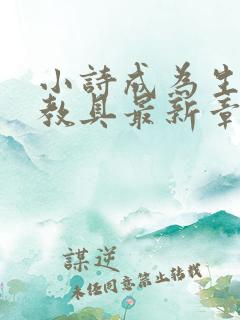 小詩成為生
教具最新章
謀逆
未经同意禁止转载